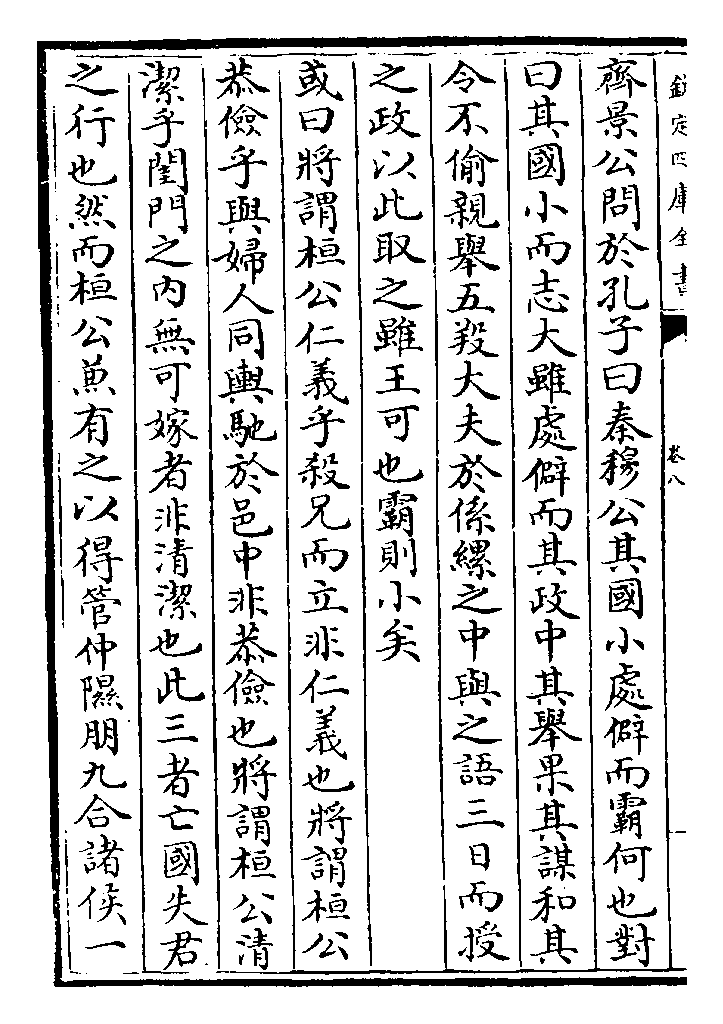 欽定四庫全書
卷八
齊景公問於孔子曰秦穆公其國小處僻而霸何也對
曰其國小而志大雖處僻而其政中其舉果其謀和其
令不偷親舉五羖大夫於係縲之中與之語三日而授
之政以此取之雖王可也霸則小矣
或曰將謂桓公仁義乎殺兄而立非仁義也將謂桓公
恭儉乎與婦人同輿馳於邑中非恭儉也將謂桓公清
潔乎閨門之內無可嫁者非清潔也此三者亡國失君
之行也然而桓公兼有之以得管仲隰朋九合諸侯一